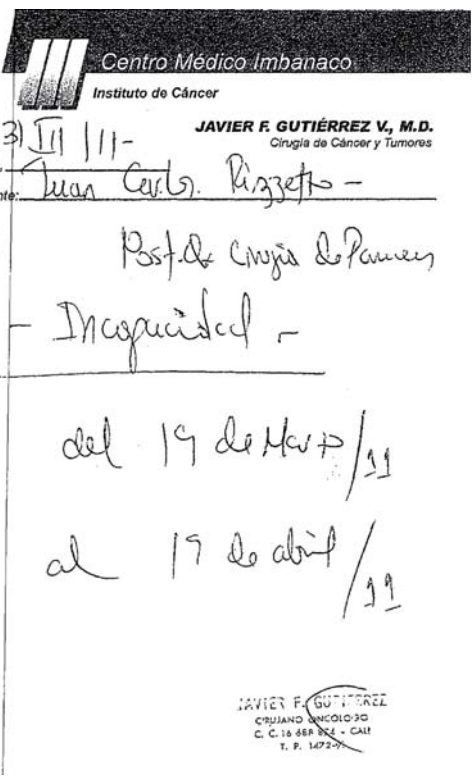 Centro Médico Imbanaco
Instituto de Cáncer
JAVIER F. GUTIÉRREZ V., M.D.
Cirugía de Cáncer y Tumores
III / 11 -
nte: Juan Carlos Rizzetto -
Post. de Cirugía de Pancreas
- Incapacidad -
del 19 de Marzo / 11
al 19 de abril / 11
JAVIER F. GUTIERREZ
CIRUJANO ONCOLOGO
C. C. 16 688 874 - CALI
T. P. 1472-